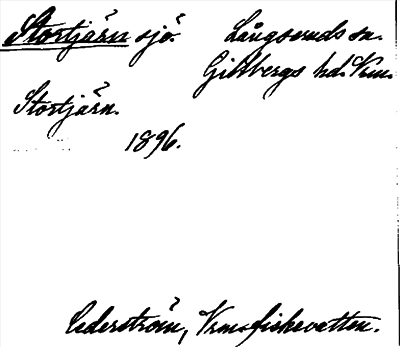 Stortjärn sjö. Långseruds sn.
Gillbergs hd. Vrm.
Stortjärn.
1896.
Cederström, Vrms fiskevatten.